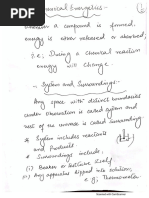 Chemical Energetics:-
Whenever a compound is formed,
energy is either released or absorbed,
i.e; During a chemical reaction
energy will change.
System and Surroundings:-
Any space with distinct boundaries
under observation is called System and
rest of the universe is called Surrounding
System includes reactants
and Products
Surroundings include.
(i) Beaker or testtube itself
(ii) Any apparatus dipped into solution,
e.g; Thermometer